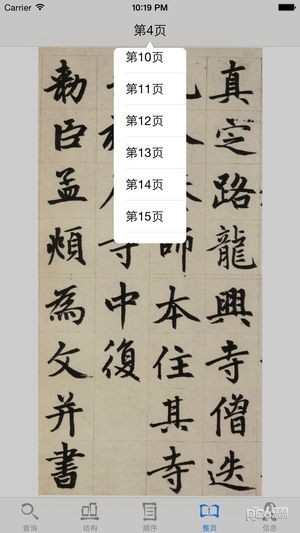 Carrier
10:19 PM
第4页
第10页
第11页
第12页
第13页
第14页
第15页
真定路龍興寺僧迭
師本住其寺
寺中復
勅臣孟頫為文并書
查询
结构
顺序
整页
信息